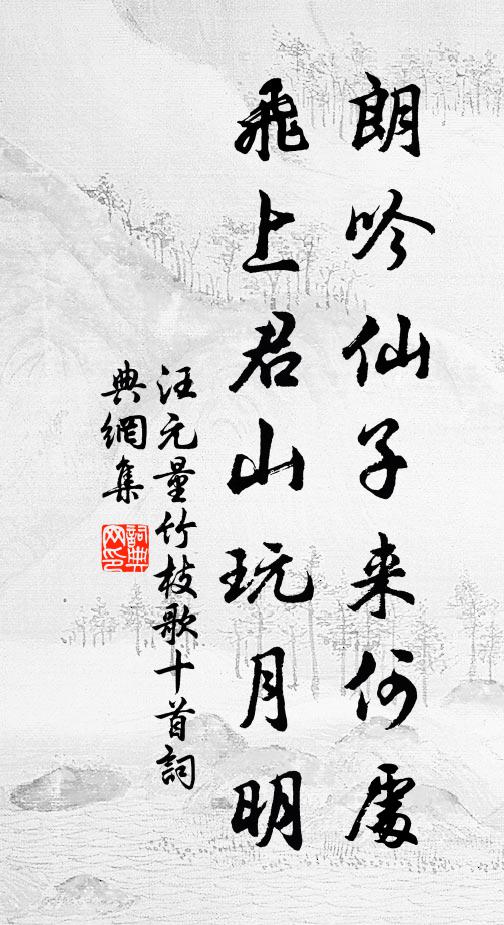 朗吟仙子来何處
飛上君山玩月明
汪元量竹枝歌十首詞
典網集
詞典
网印